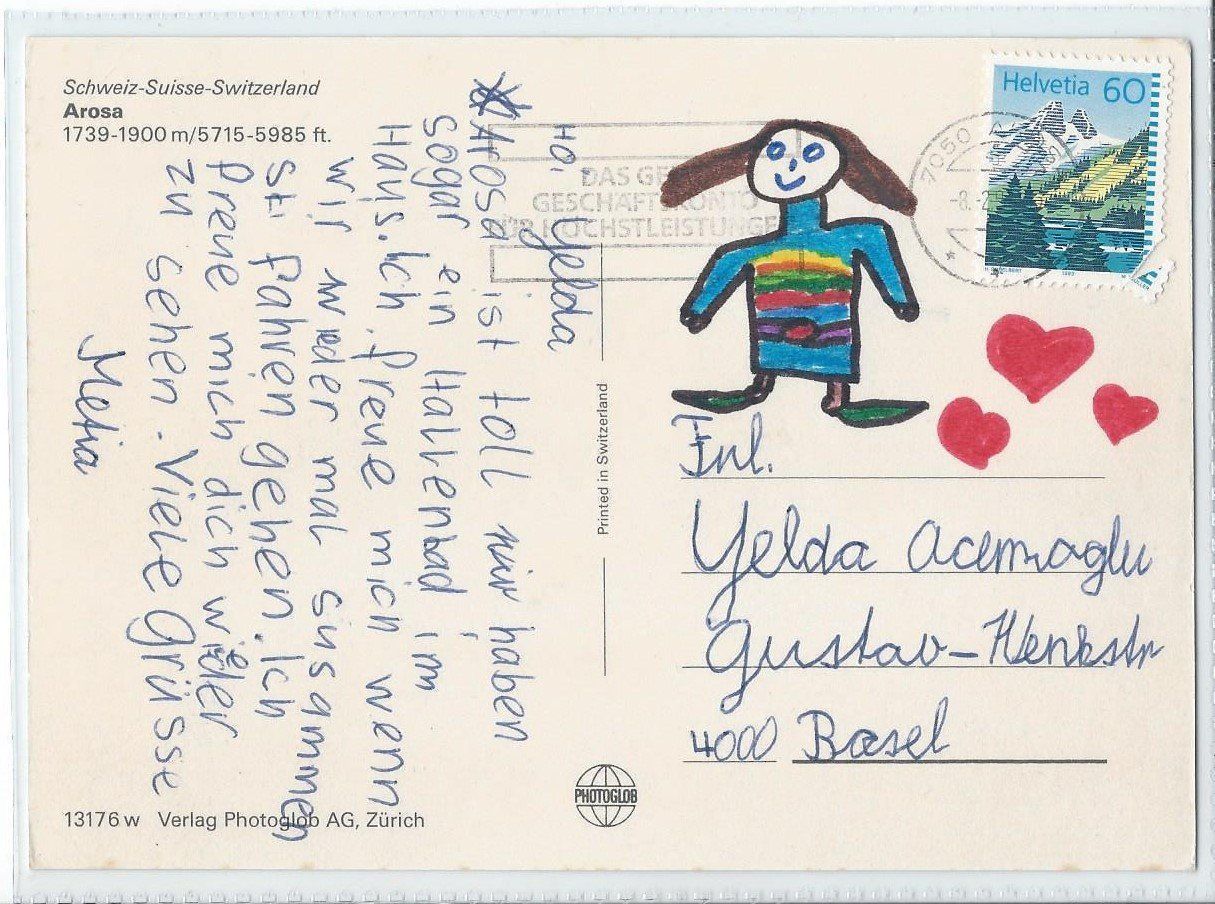 Schweiz-Suisse-Switzerland
Arosa
1739-1900 m/5715-5985 ft.
Helvetia 60
7050
DAS
GESCHÄFTSKONTO
FÜR HÖCHSTLEISTUNGEN
Yelda
Arosa ist toll wir haben
Sogar ein Hallenbad im
Haus. Ich freue mich wenn
wir wieder mal susammen
Sti fahren gehen. Ich
freue mich dich wieder
zu sehen. Viele Grüsse
Printed in Switzerland
Frl.
Yelda Acemoglu
4000 Basel
PHOTOGLOB
13176 w Verlag Photoglob AG, Zürich